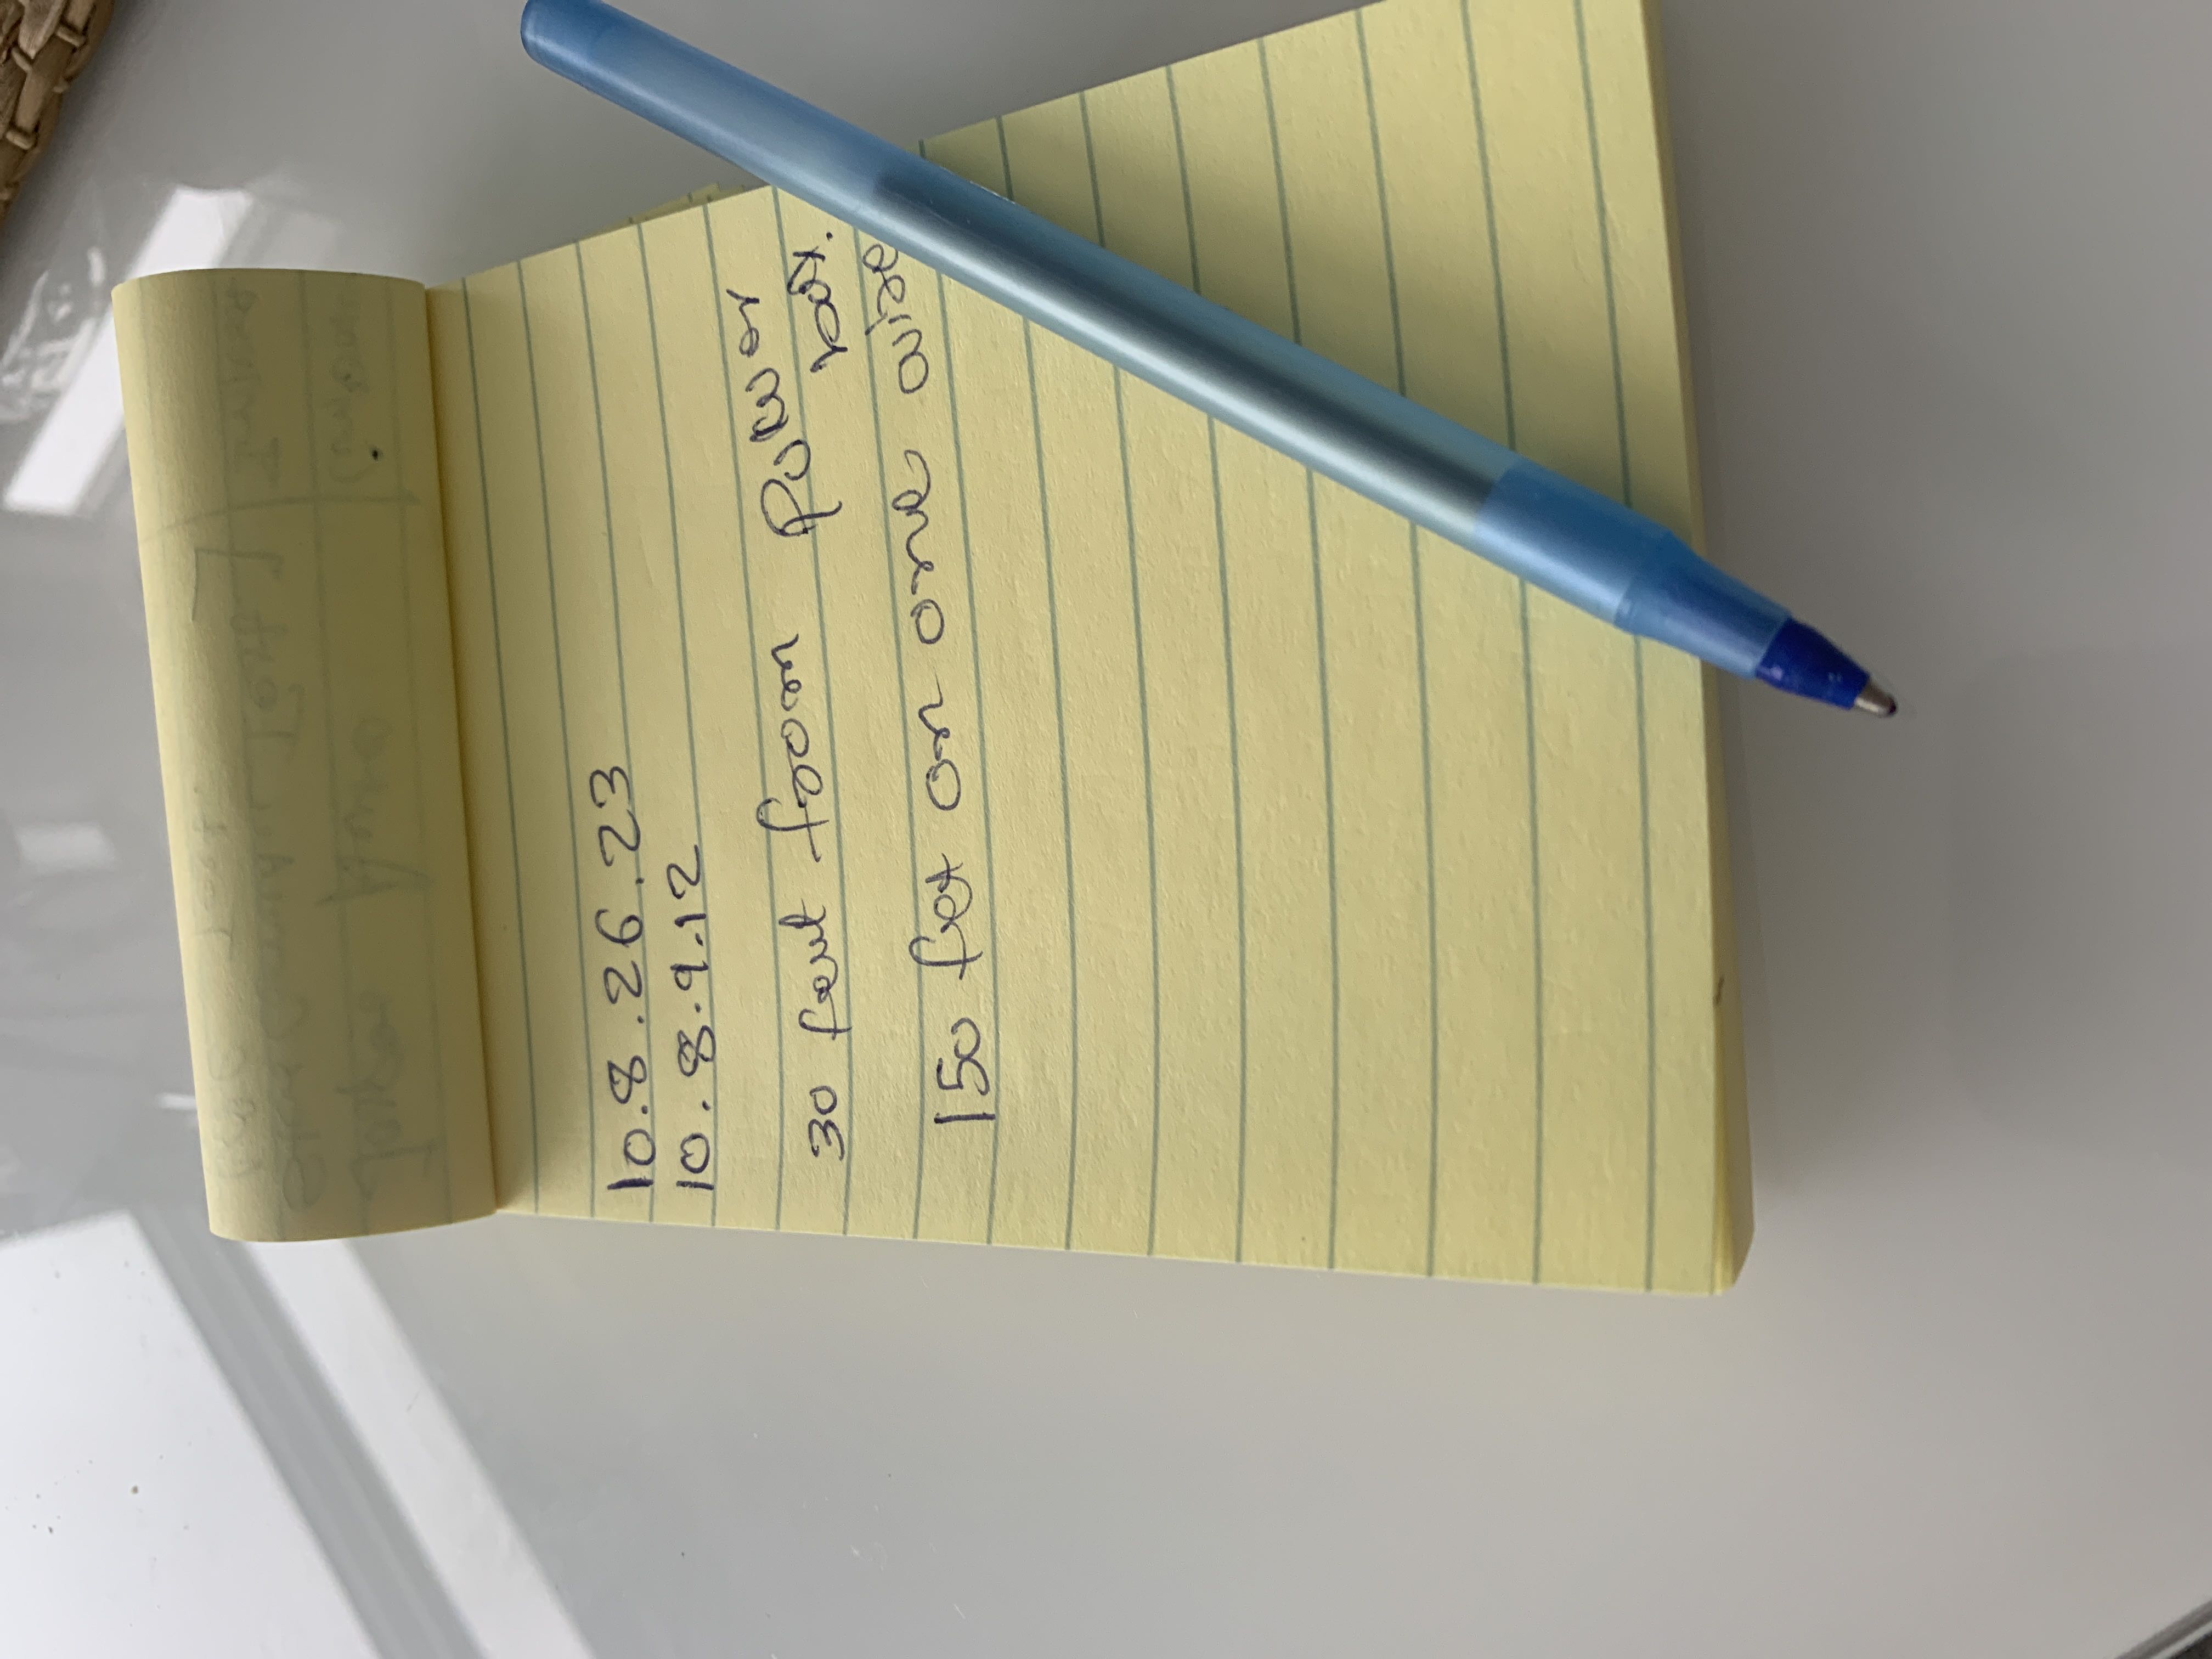 10.8.26.23
10.8.9.12
30 feet from Power
box.
150 feet on one wire